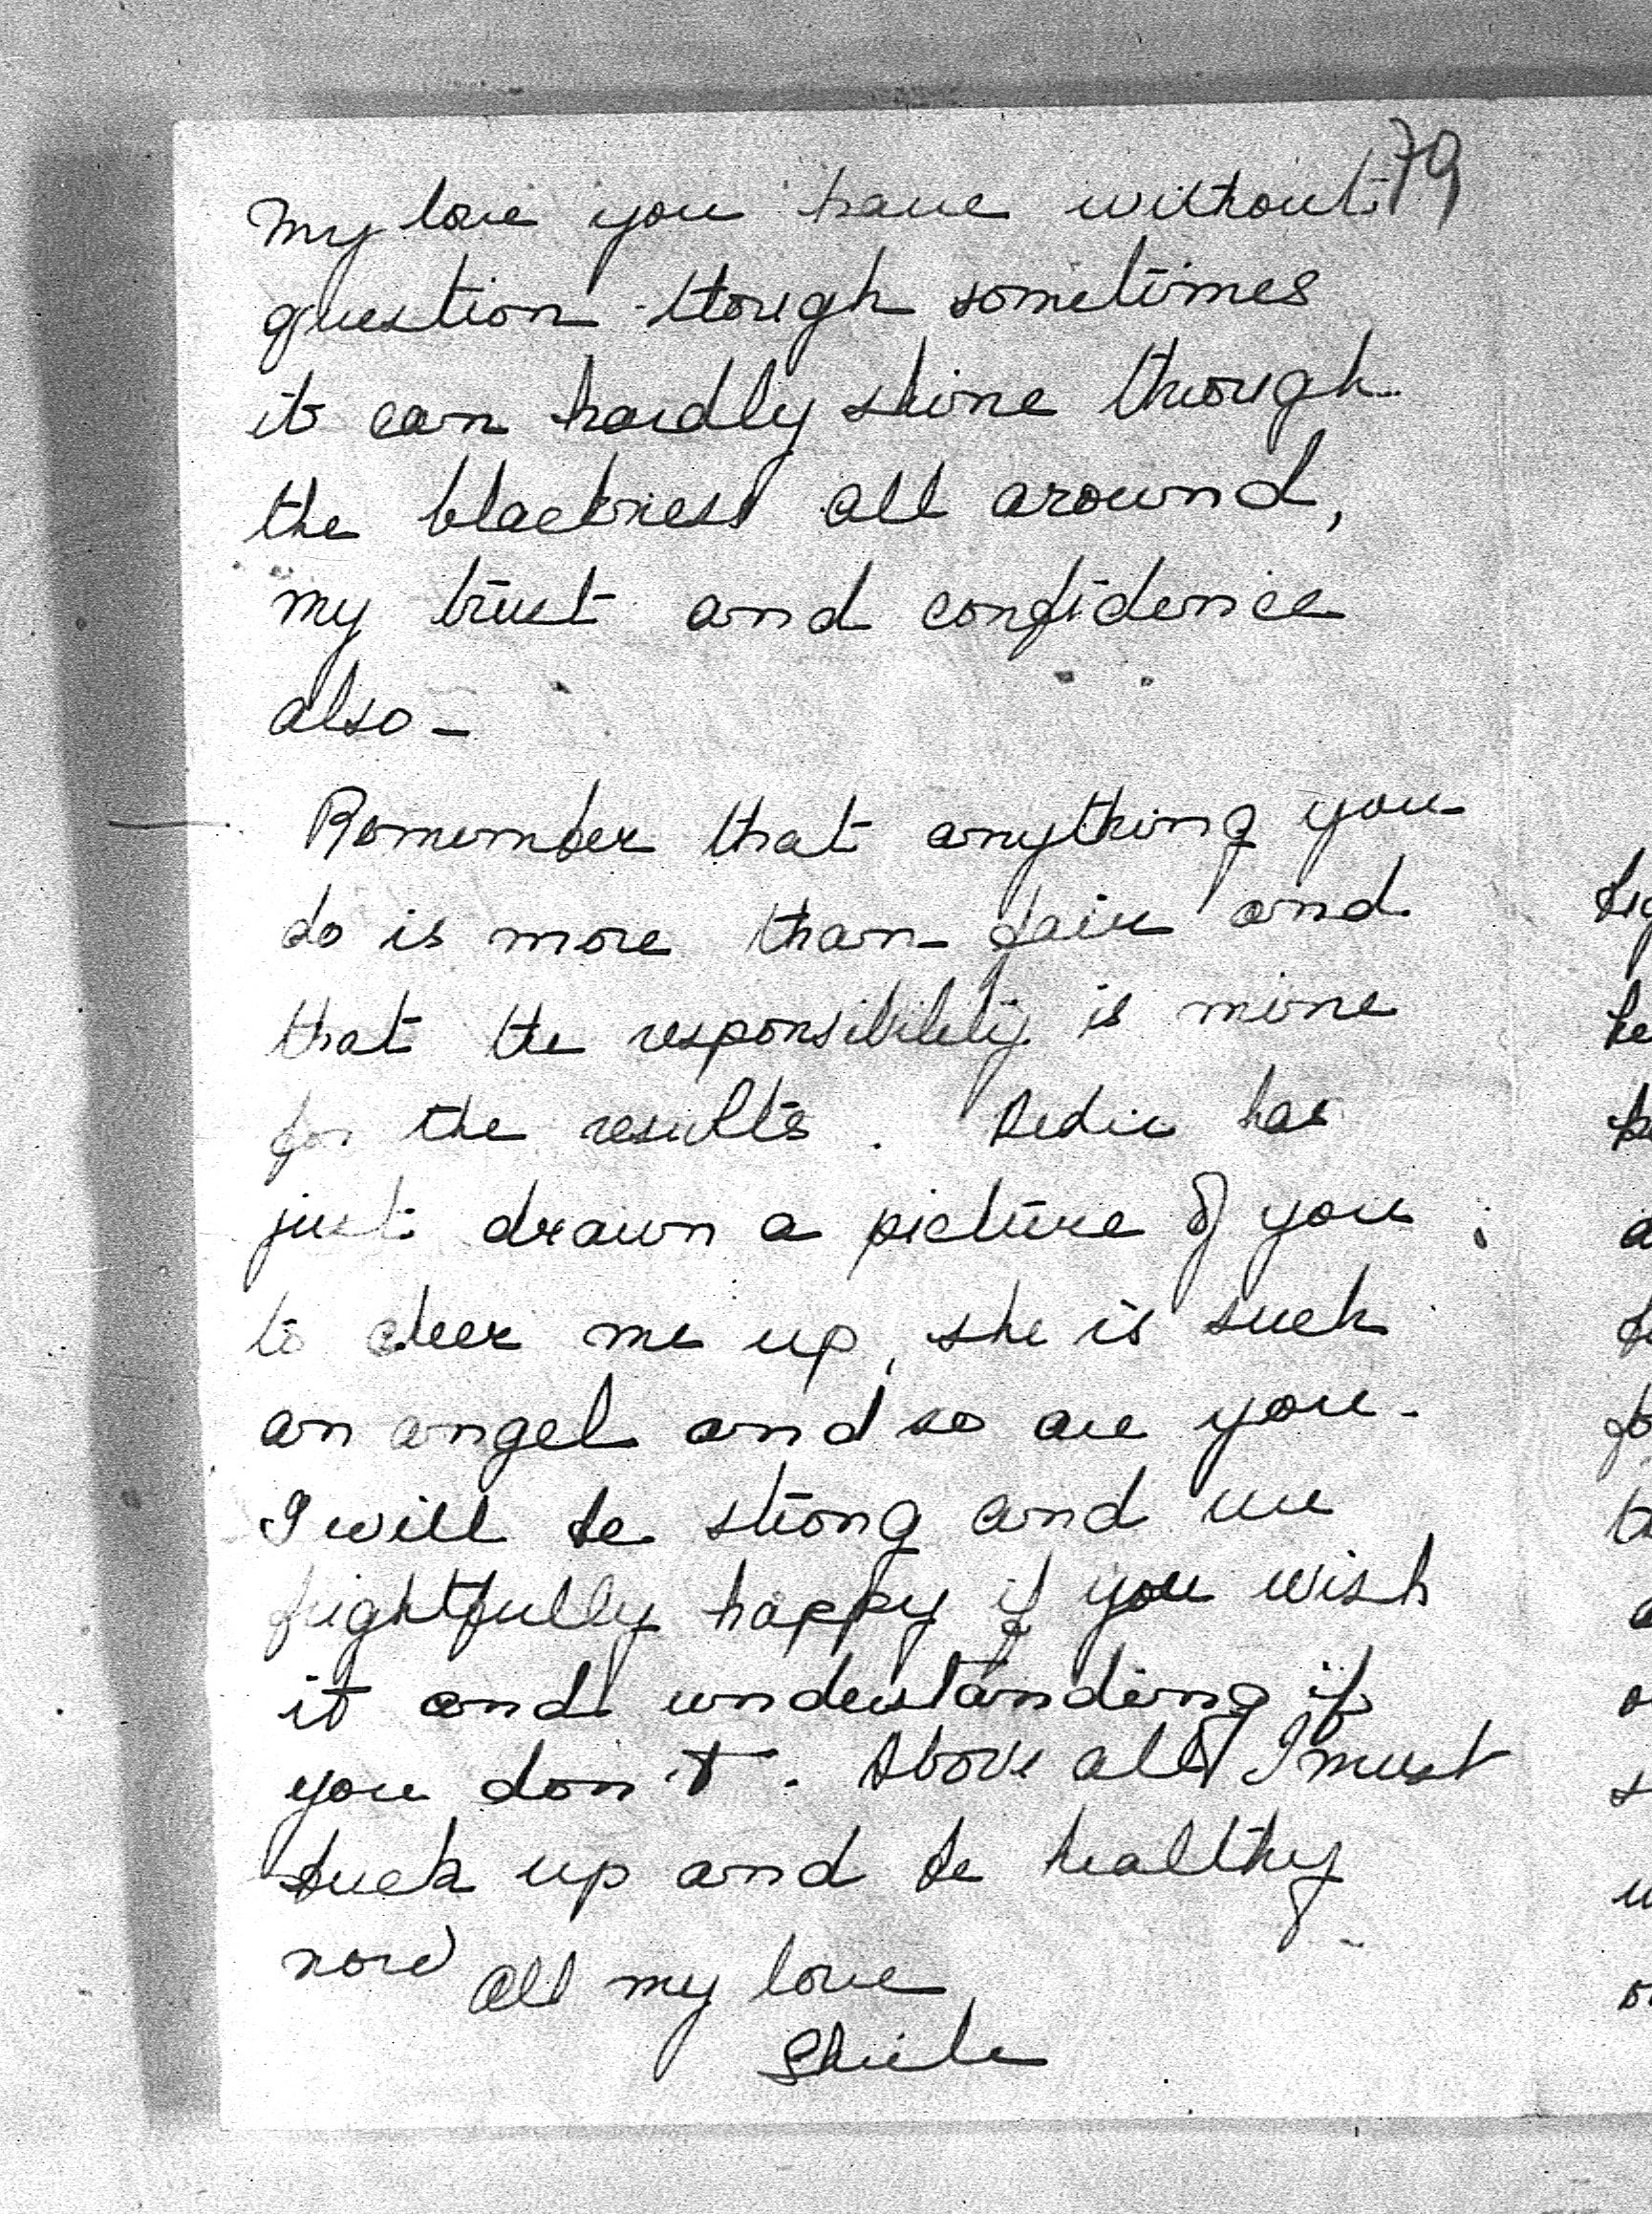 79
My love you have without
question though sometimes
it can hardly shine through
the blackness all around,
my trust and confidence
also -
Remember that anything you
do is more than fair and
that the responsibility is mine
for the results. has
just drawn a picture of you
to cheer me up, she is such
an angel and so are you -
I will be strong and
frightfully happy if you wish
it and understanding if
you don't. Above all I must
buck up and be healthy
now All my love
Sheila